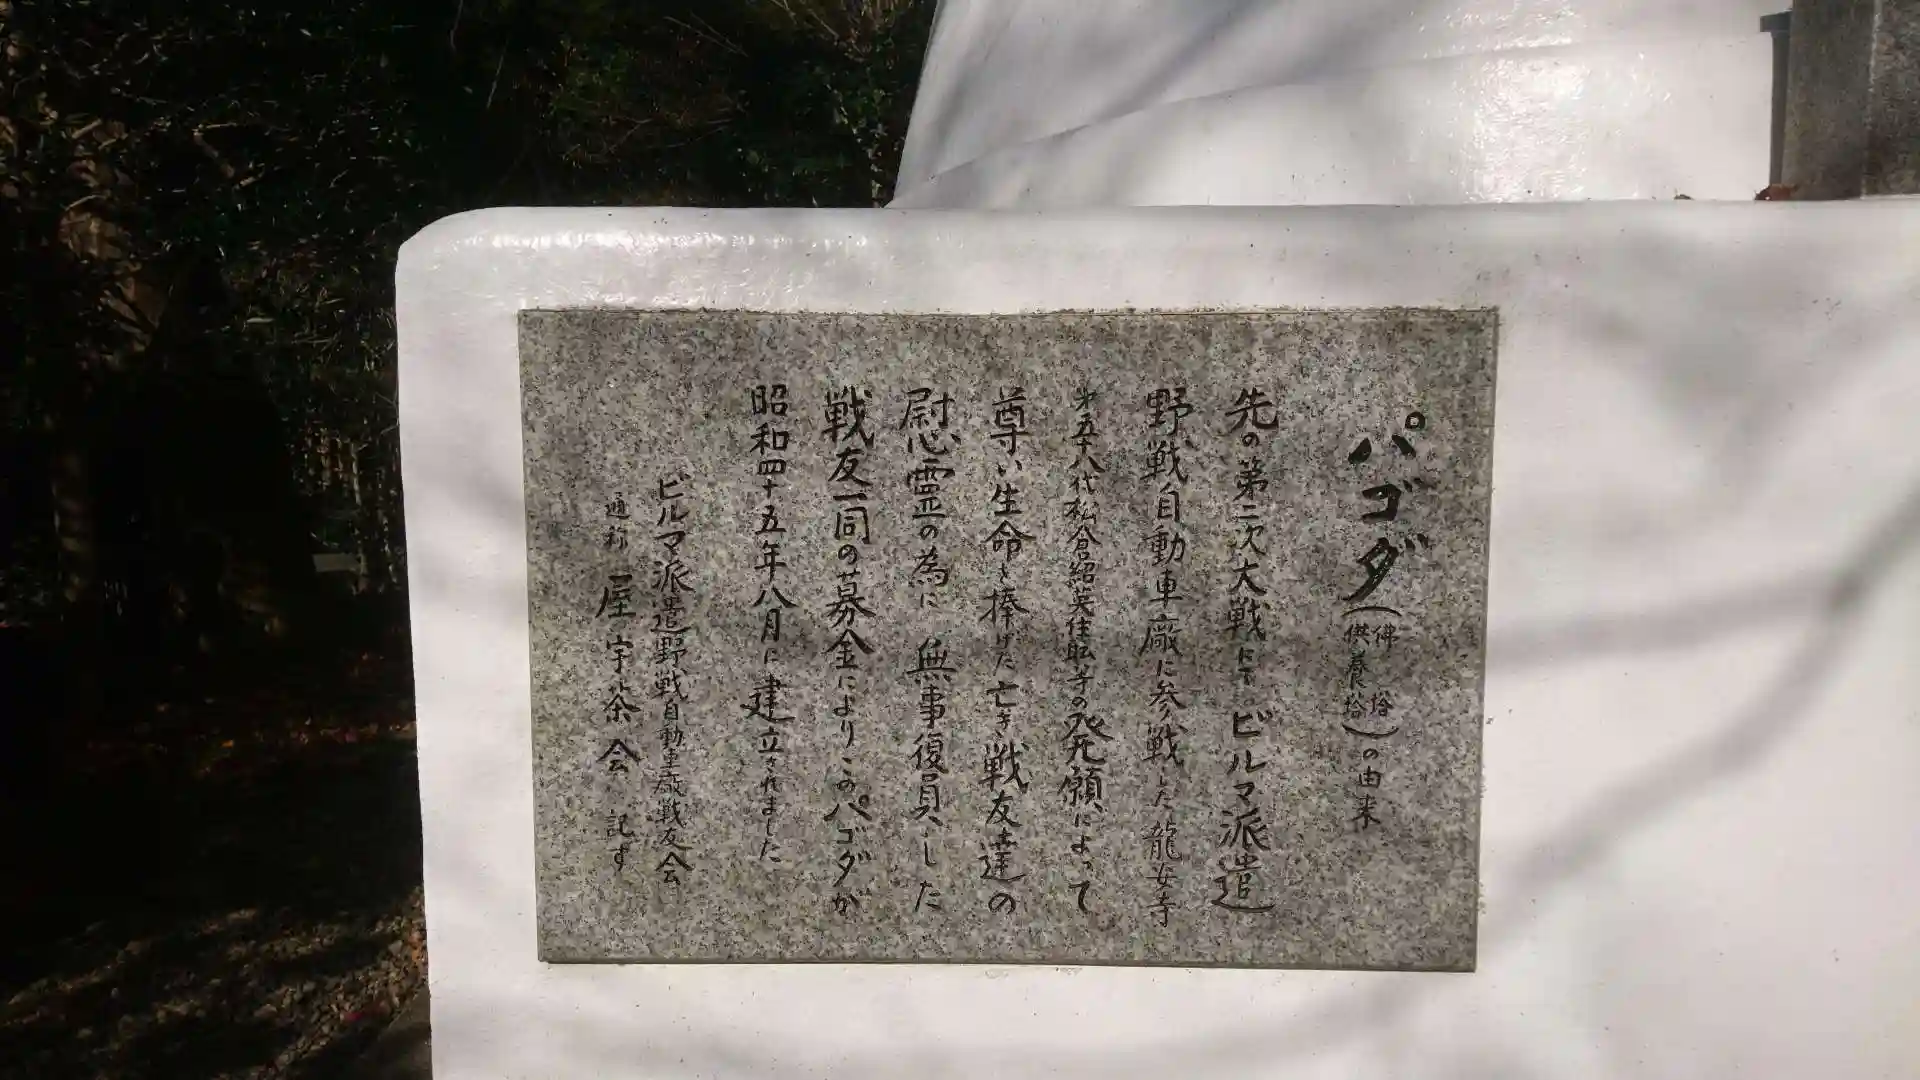 パゴダ(佛俗供養拾)の由来
先の第二次大戦にて ビルマ派遣
野戦自動車廠に参戦した龍安寺
㐧五十八代松倉紹英住職等の発願によって
尊い生命を捧げた亡き戦友達の
慰霊の為に 無事復員した
戦友一同の募金によりこのパゴダが
昭和四十五年八月に建立されました
ビルマ派遣野戦自動車廠戦友会
通称 一座宇茶会 記す